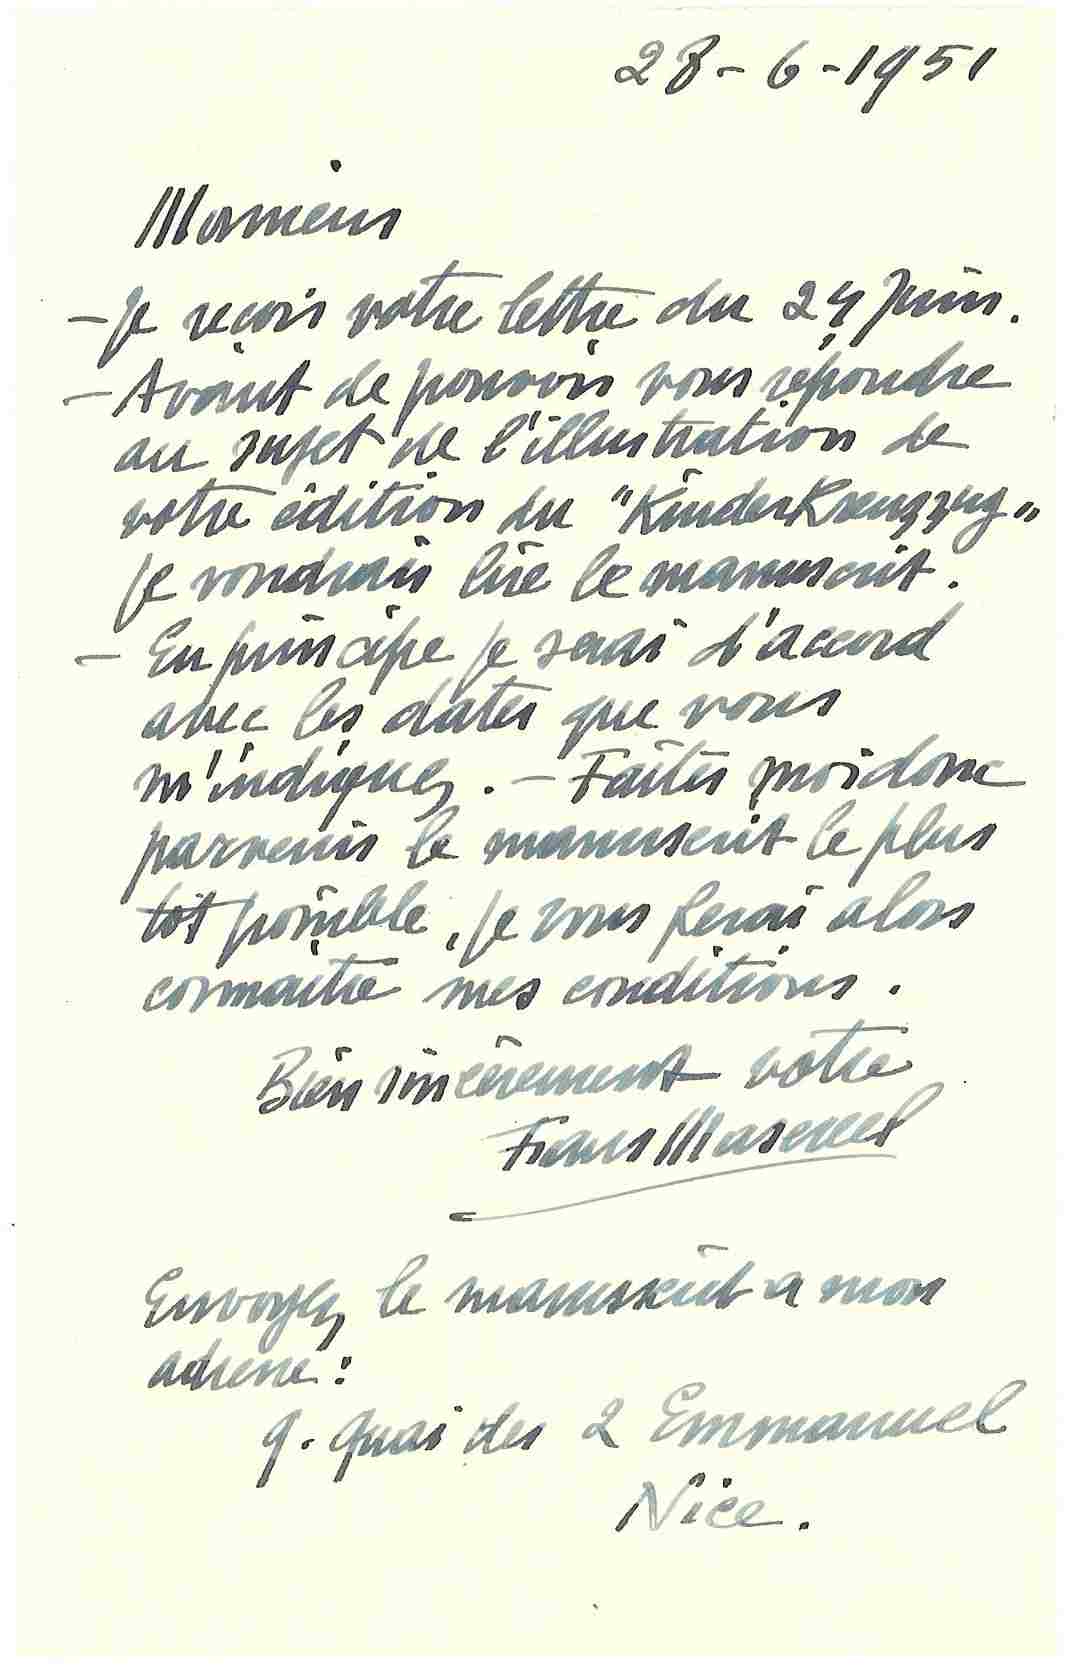 28-6-1951
Monsieur
- Je reçois votre lettre du 24 Juin.
- Avant de pouvoir vous répondre
au sujet de l'illustration de
votre édition du "Kinderkreuzzug"
je voudrais lire le manuscrit.
- En principe je serai d'accord
avec les dates que vous
m'indiquez. - Faites moi donc
parvenir le manuscrit le plus
tôt possible, je vous ferai alors
connaître mes conditions.
Bien sincèrement votre
Frans Masereel
Envoyez le manuscrit a mon
adresse:
9. Quai des 2 Emmanuel
Nice.